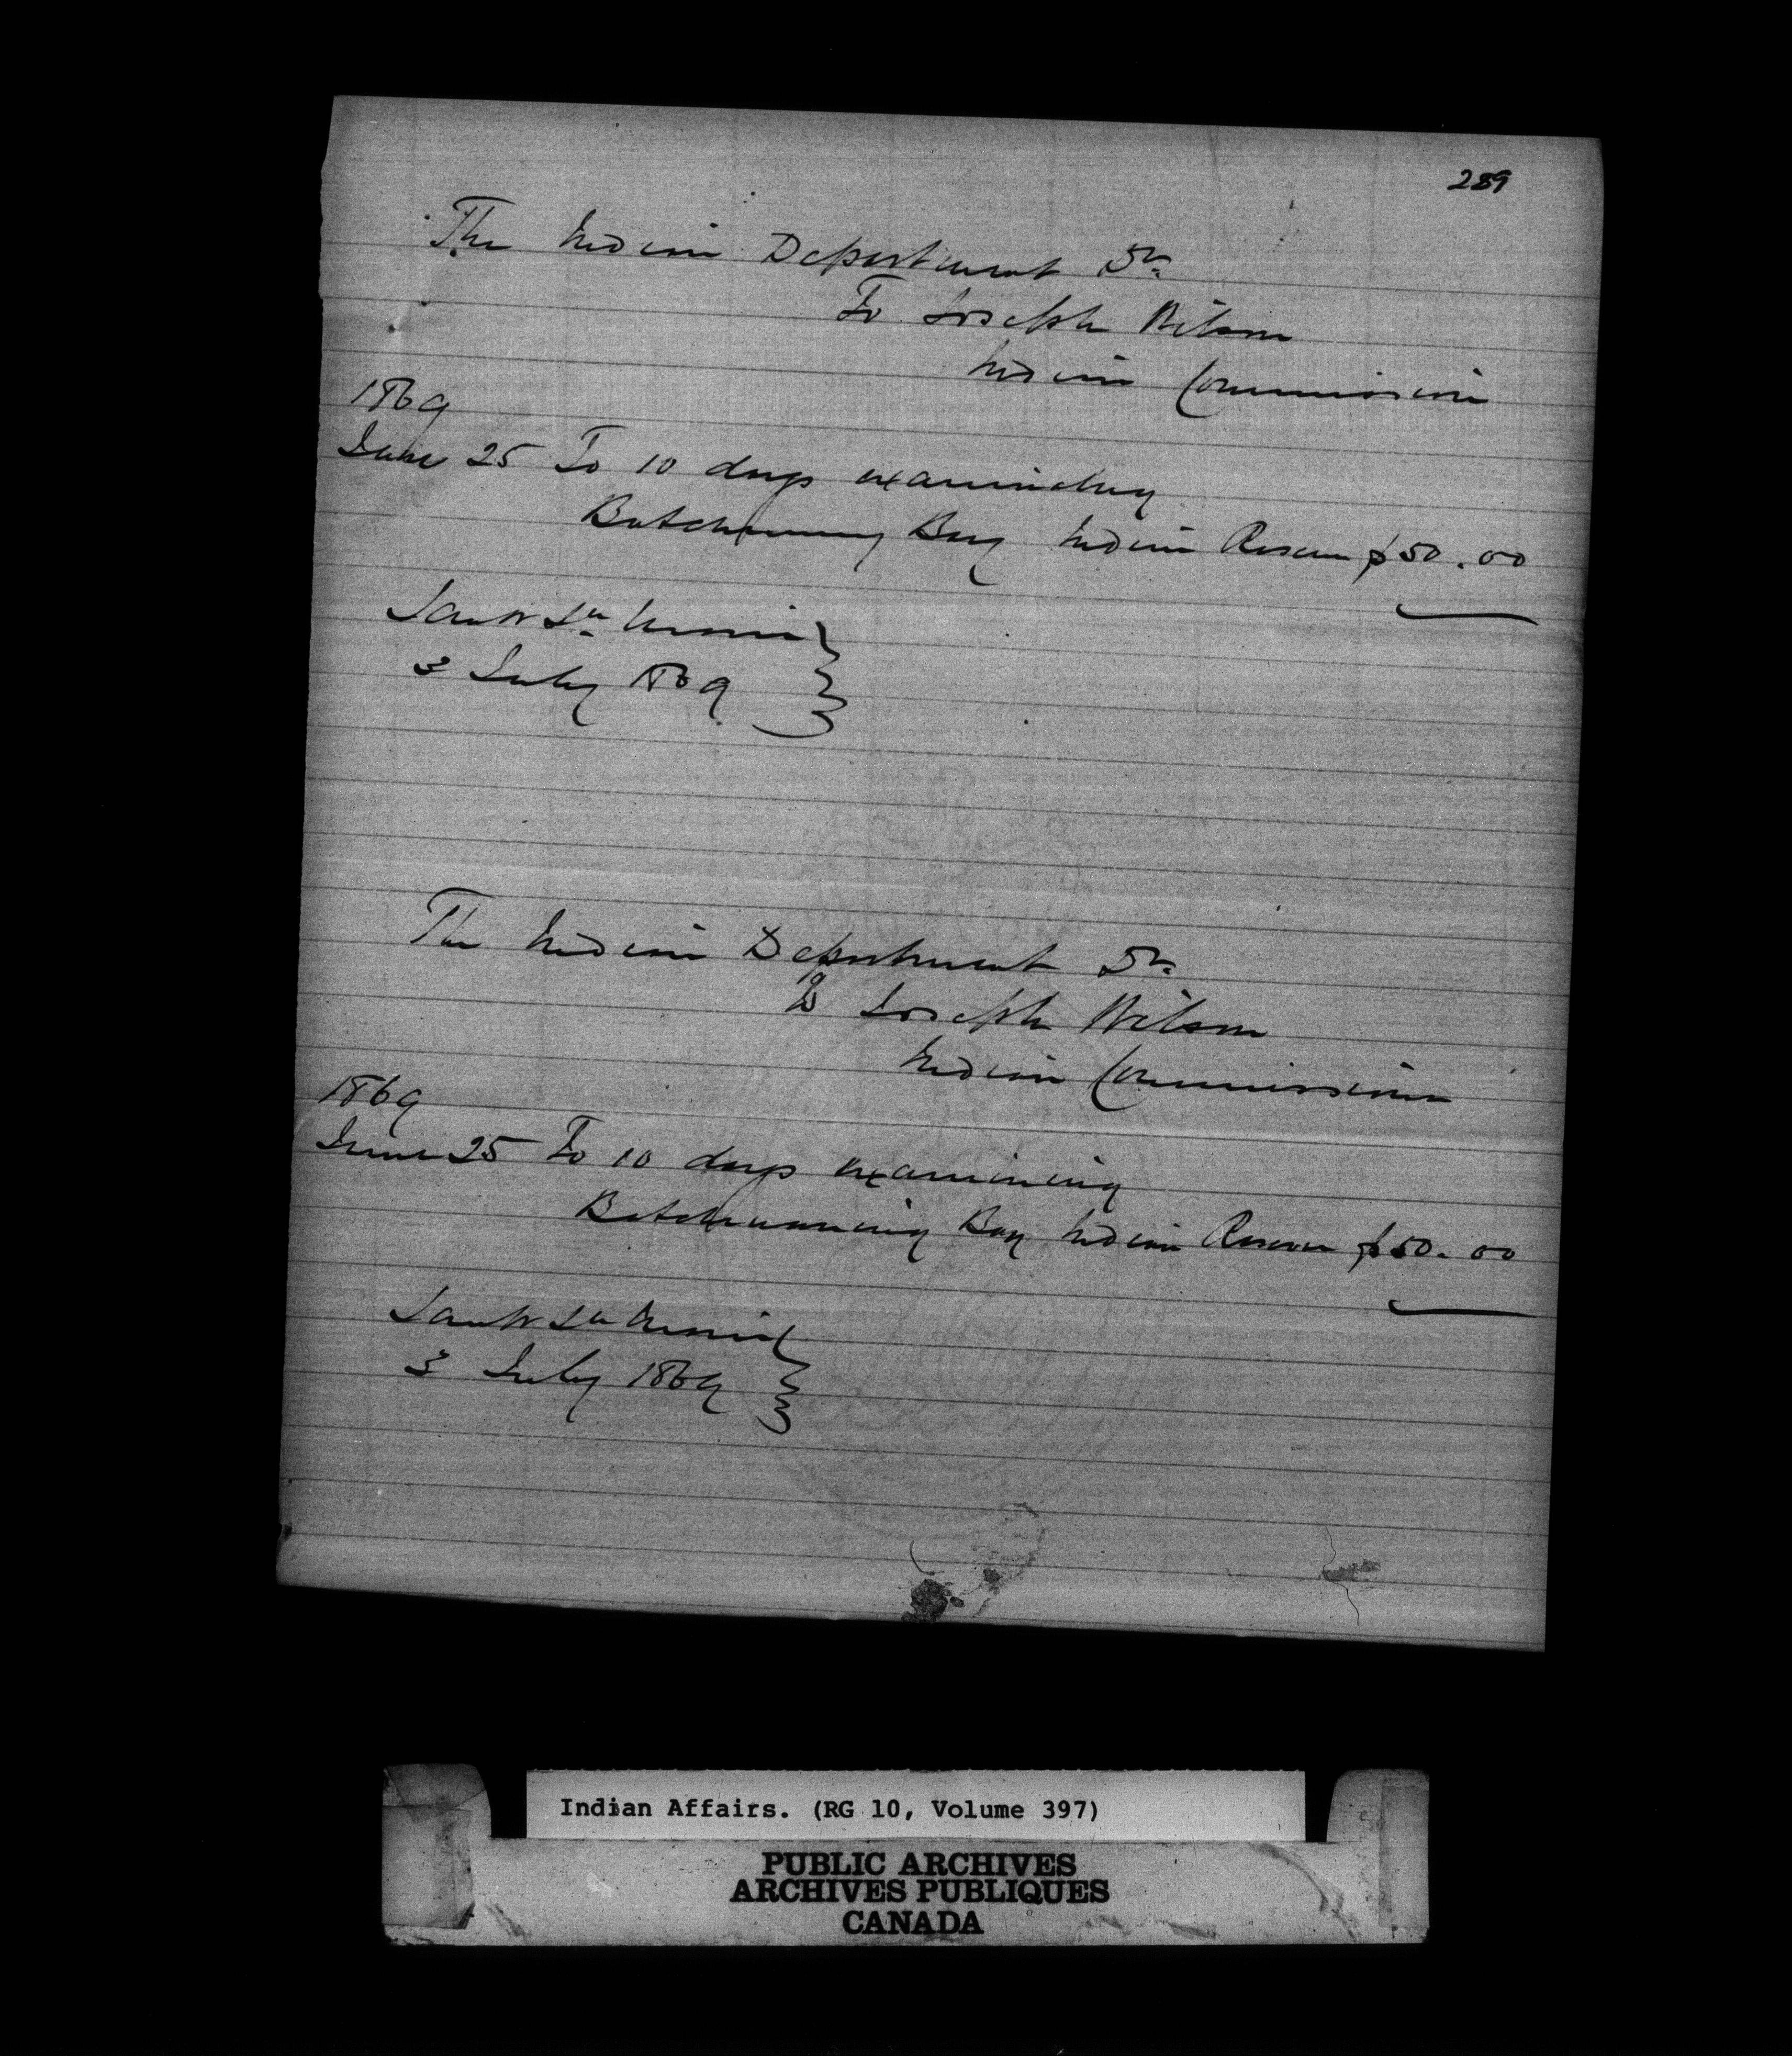 289
The Indian Department Dr.
To Joseph Wilson
Indian Commissioner
1869
June 25 To 10 days examining
Batchewanning Bay Indian Reserve $50.00
Sault Ste Marie
3 July 1869
The Indian Department Dr.
To Joseph Wilson
Indian Commissioner
1869
June 25 To 10 days examining
Batchewanning Bay Indian Reserve $50.00
Sault Ste Marie
3 July 1869
Indian Affairs. (RG 10, Volume 397)
PUBLIC ARCHIVES
ARCHIVES PUBLIQUES
CANADA